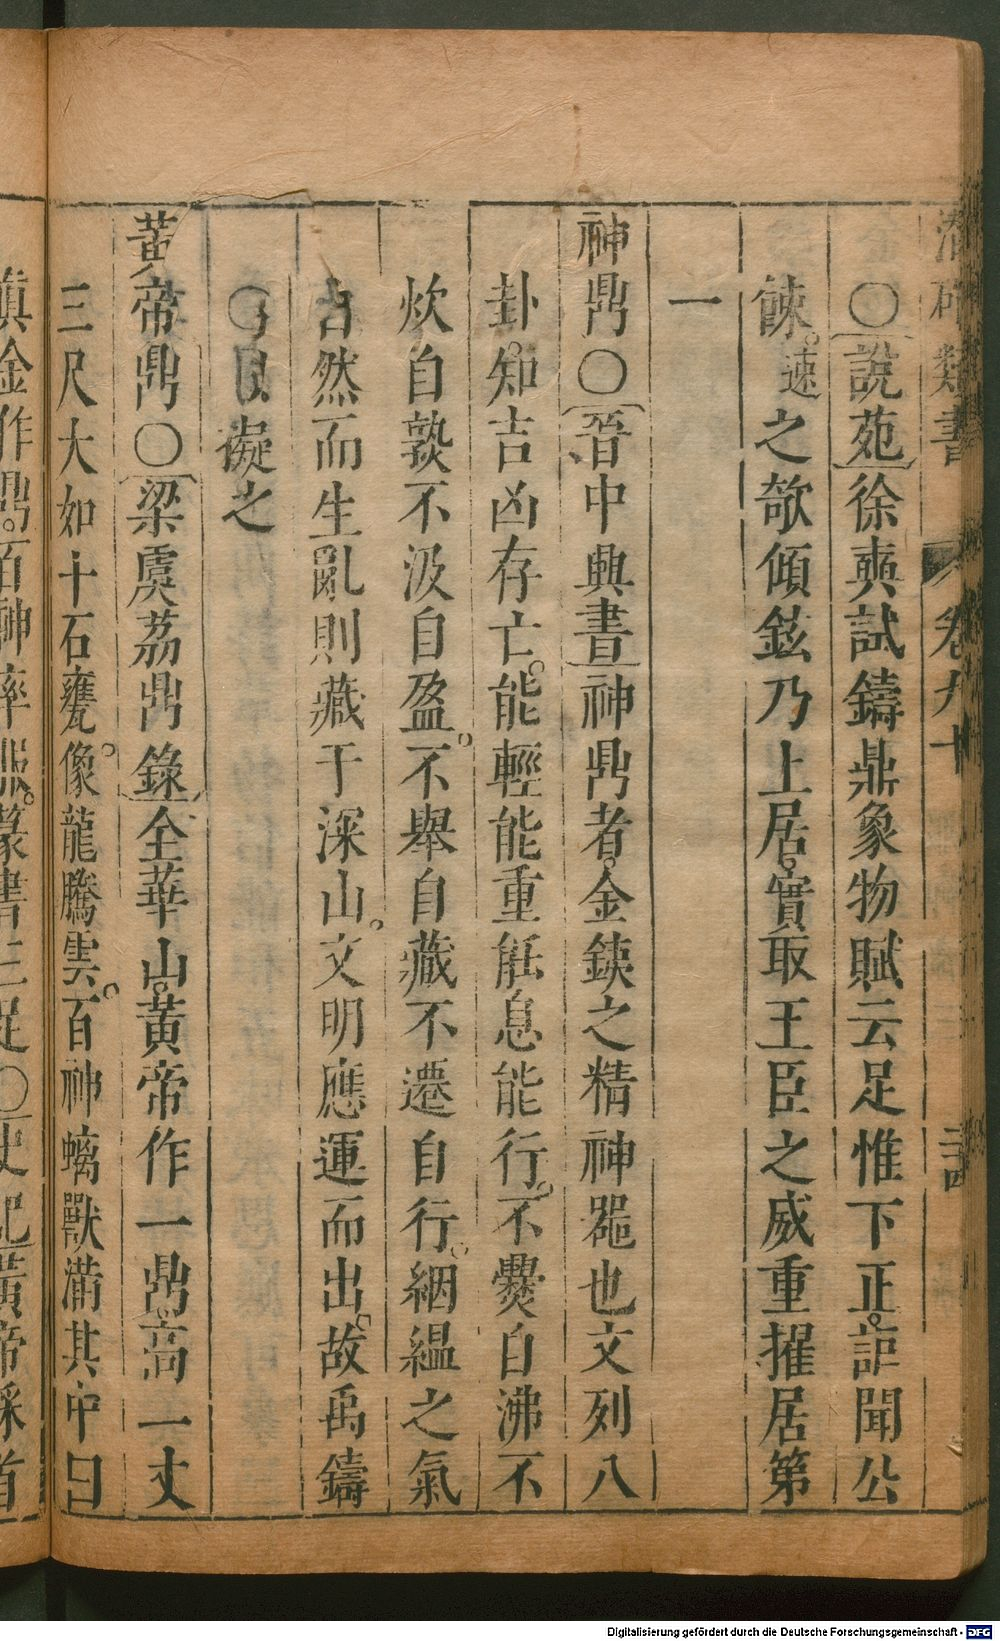 ○說苑徐奭試鑄鼎象物賦云足惟下正。詎聞公
餗。速之欹傾鉉乃上居。實取王臣之威重擢居第
一
神鼎○晉中興書神鼎者。金鐵之精神器也文列八
卦。知吉凶存亡。能輕能重能息能行。不爨自沸不
炊自熟不汲自盈。不舉自藏不遷自行。絪縕之氣
自然而生亂則藏于深山。文明應運而出。故禹鑄
以擬之
黃帝鼎○梁虞荔鼎錄全華山。黃帝作一鼎。高一丈
三尺大如十石甕。像龍騰雲。百神螭獸滿其中曰
真金作鼎。百神率服。篆書三足○史記黃帝採首
類書 卷九十 二四
Digitalisierung gefördert durch die Deutsche Forschungsgemeinschaft - DFG